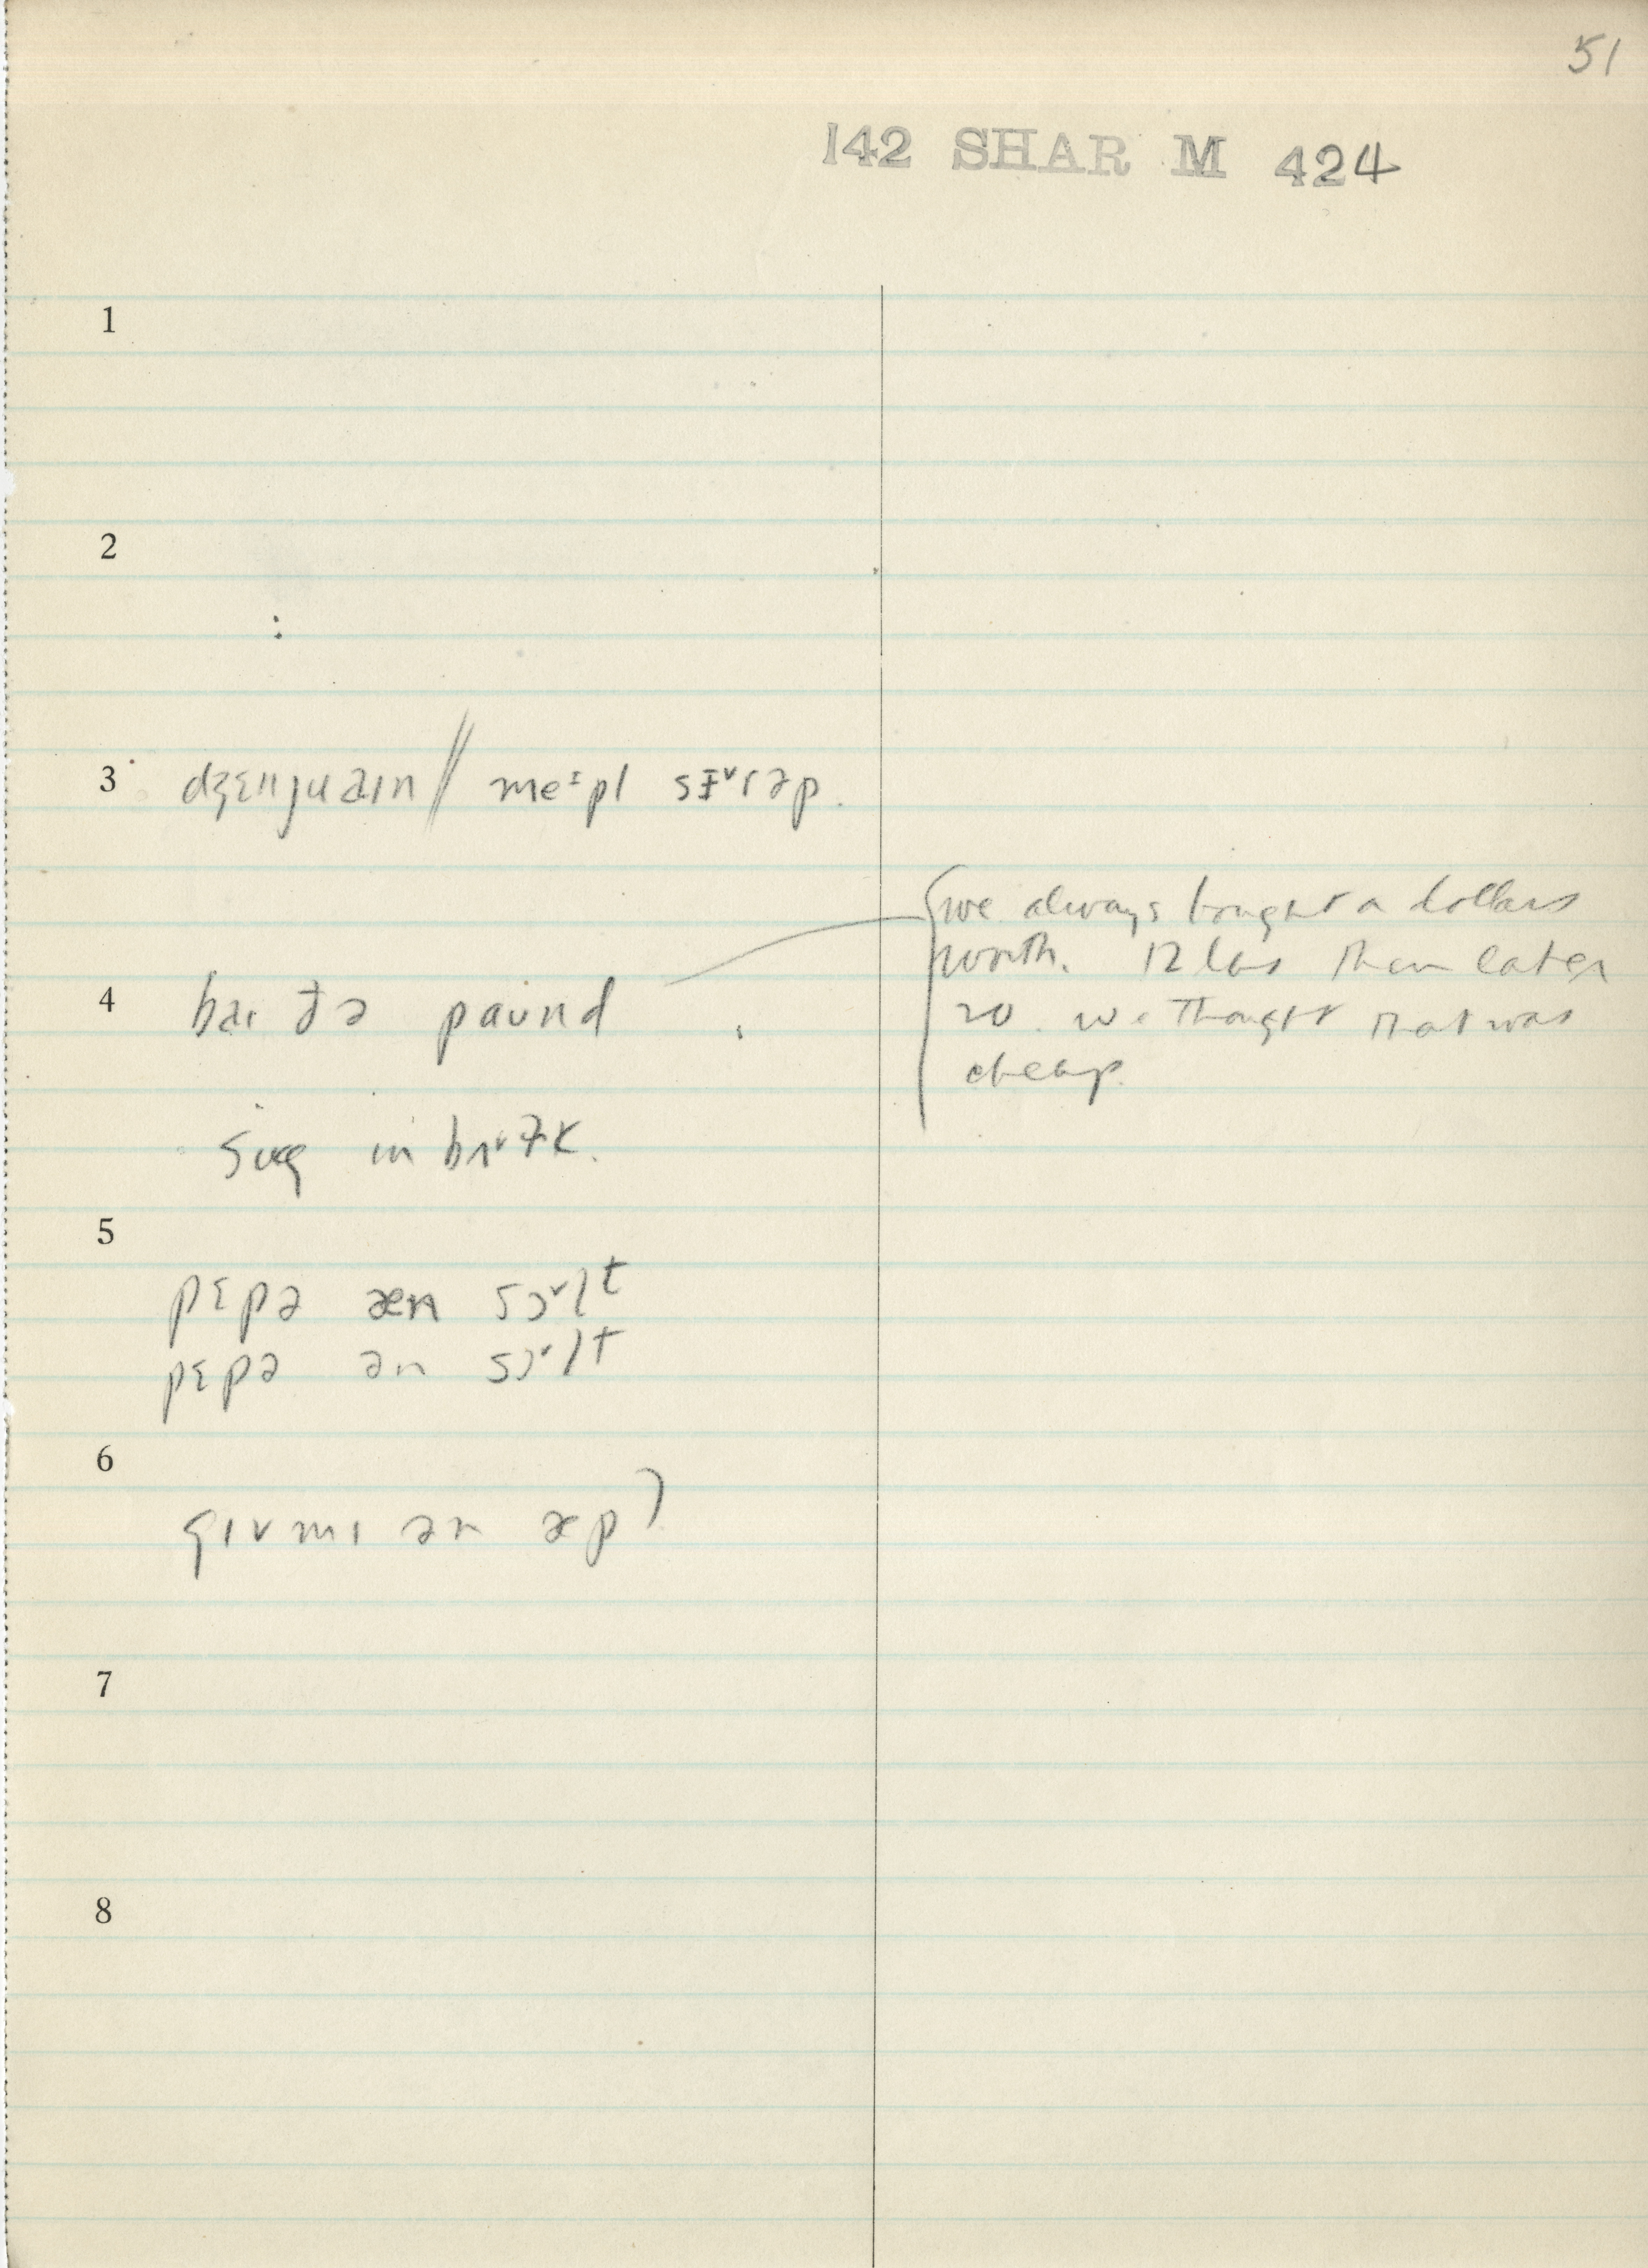 51
142 SHAR M 424
1
2
:
3 dʒɛnjuaɪn // meᶦpl sɪ˅rəp.
we always bought a dollars
worth. 12 lbs then later
4 baɪ ðə paʊnd
20. we thought that was
cheap.
in
5
pɛpə æn sɔ˅lt
pɛpə ən sɔ˅lt
6
gɪv mɪ ən æp)
7
8